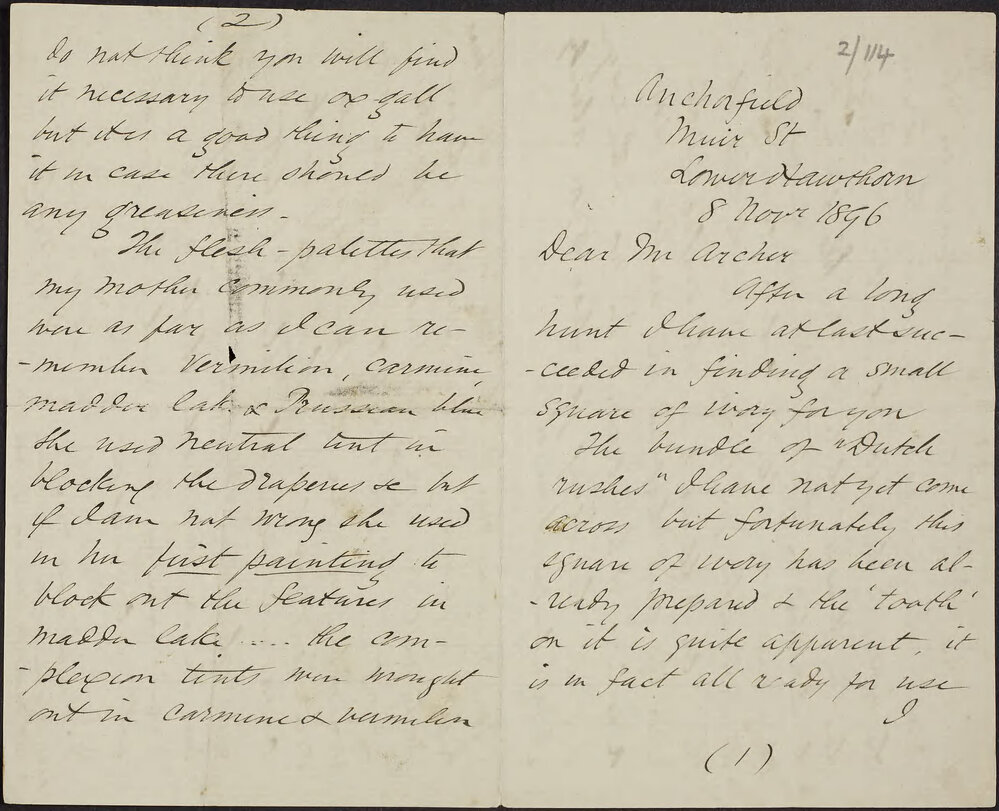 2/114
Anchorfield
Muir St
Lower Hawthorn
8 Novr 1896
Dear Mr Archer
After a long
hunt I have at last suc-
-ceeded in finding a small
square of ivory for you
The bundle of "Dutch
rushes" I have not yet come
across but fortunately this
square of ivory has been al-
-ready prepared & the 'tooth'
on it is quite apparent, it
is in fact all ready for use
I
(1)
(2)
do not think you will find
it necessary to use ox gall
but it is a good thing to have
it in case there should be
any greasiness -
The flesh-palettes that
my mother commonly used
were as far as I can re-
-member Vermilion, carmine,
madder lake & Prussian blue
She used neutral tint in
blocking the draperies &c but
if I am not wrong she used
in her first painting to
block out the features in
madder lake .... the com-
-plexion tints were wrought
out in carmine & vermilion